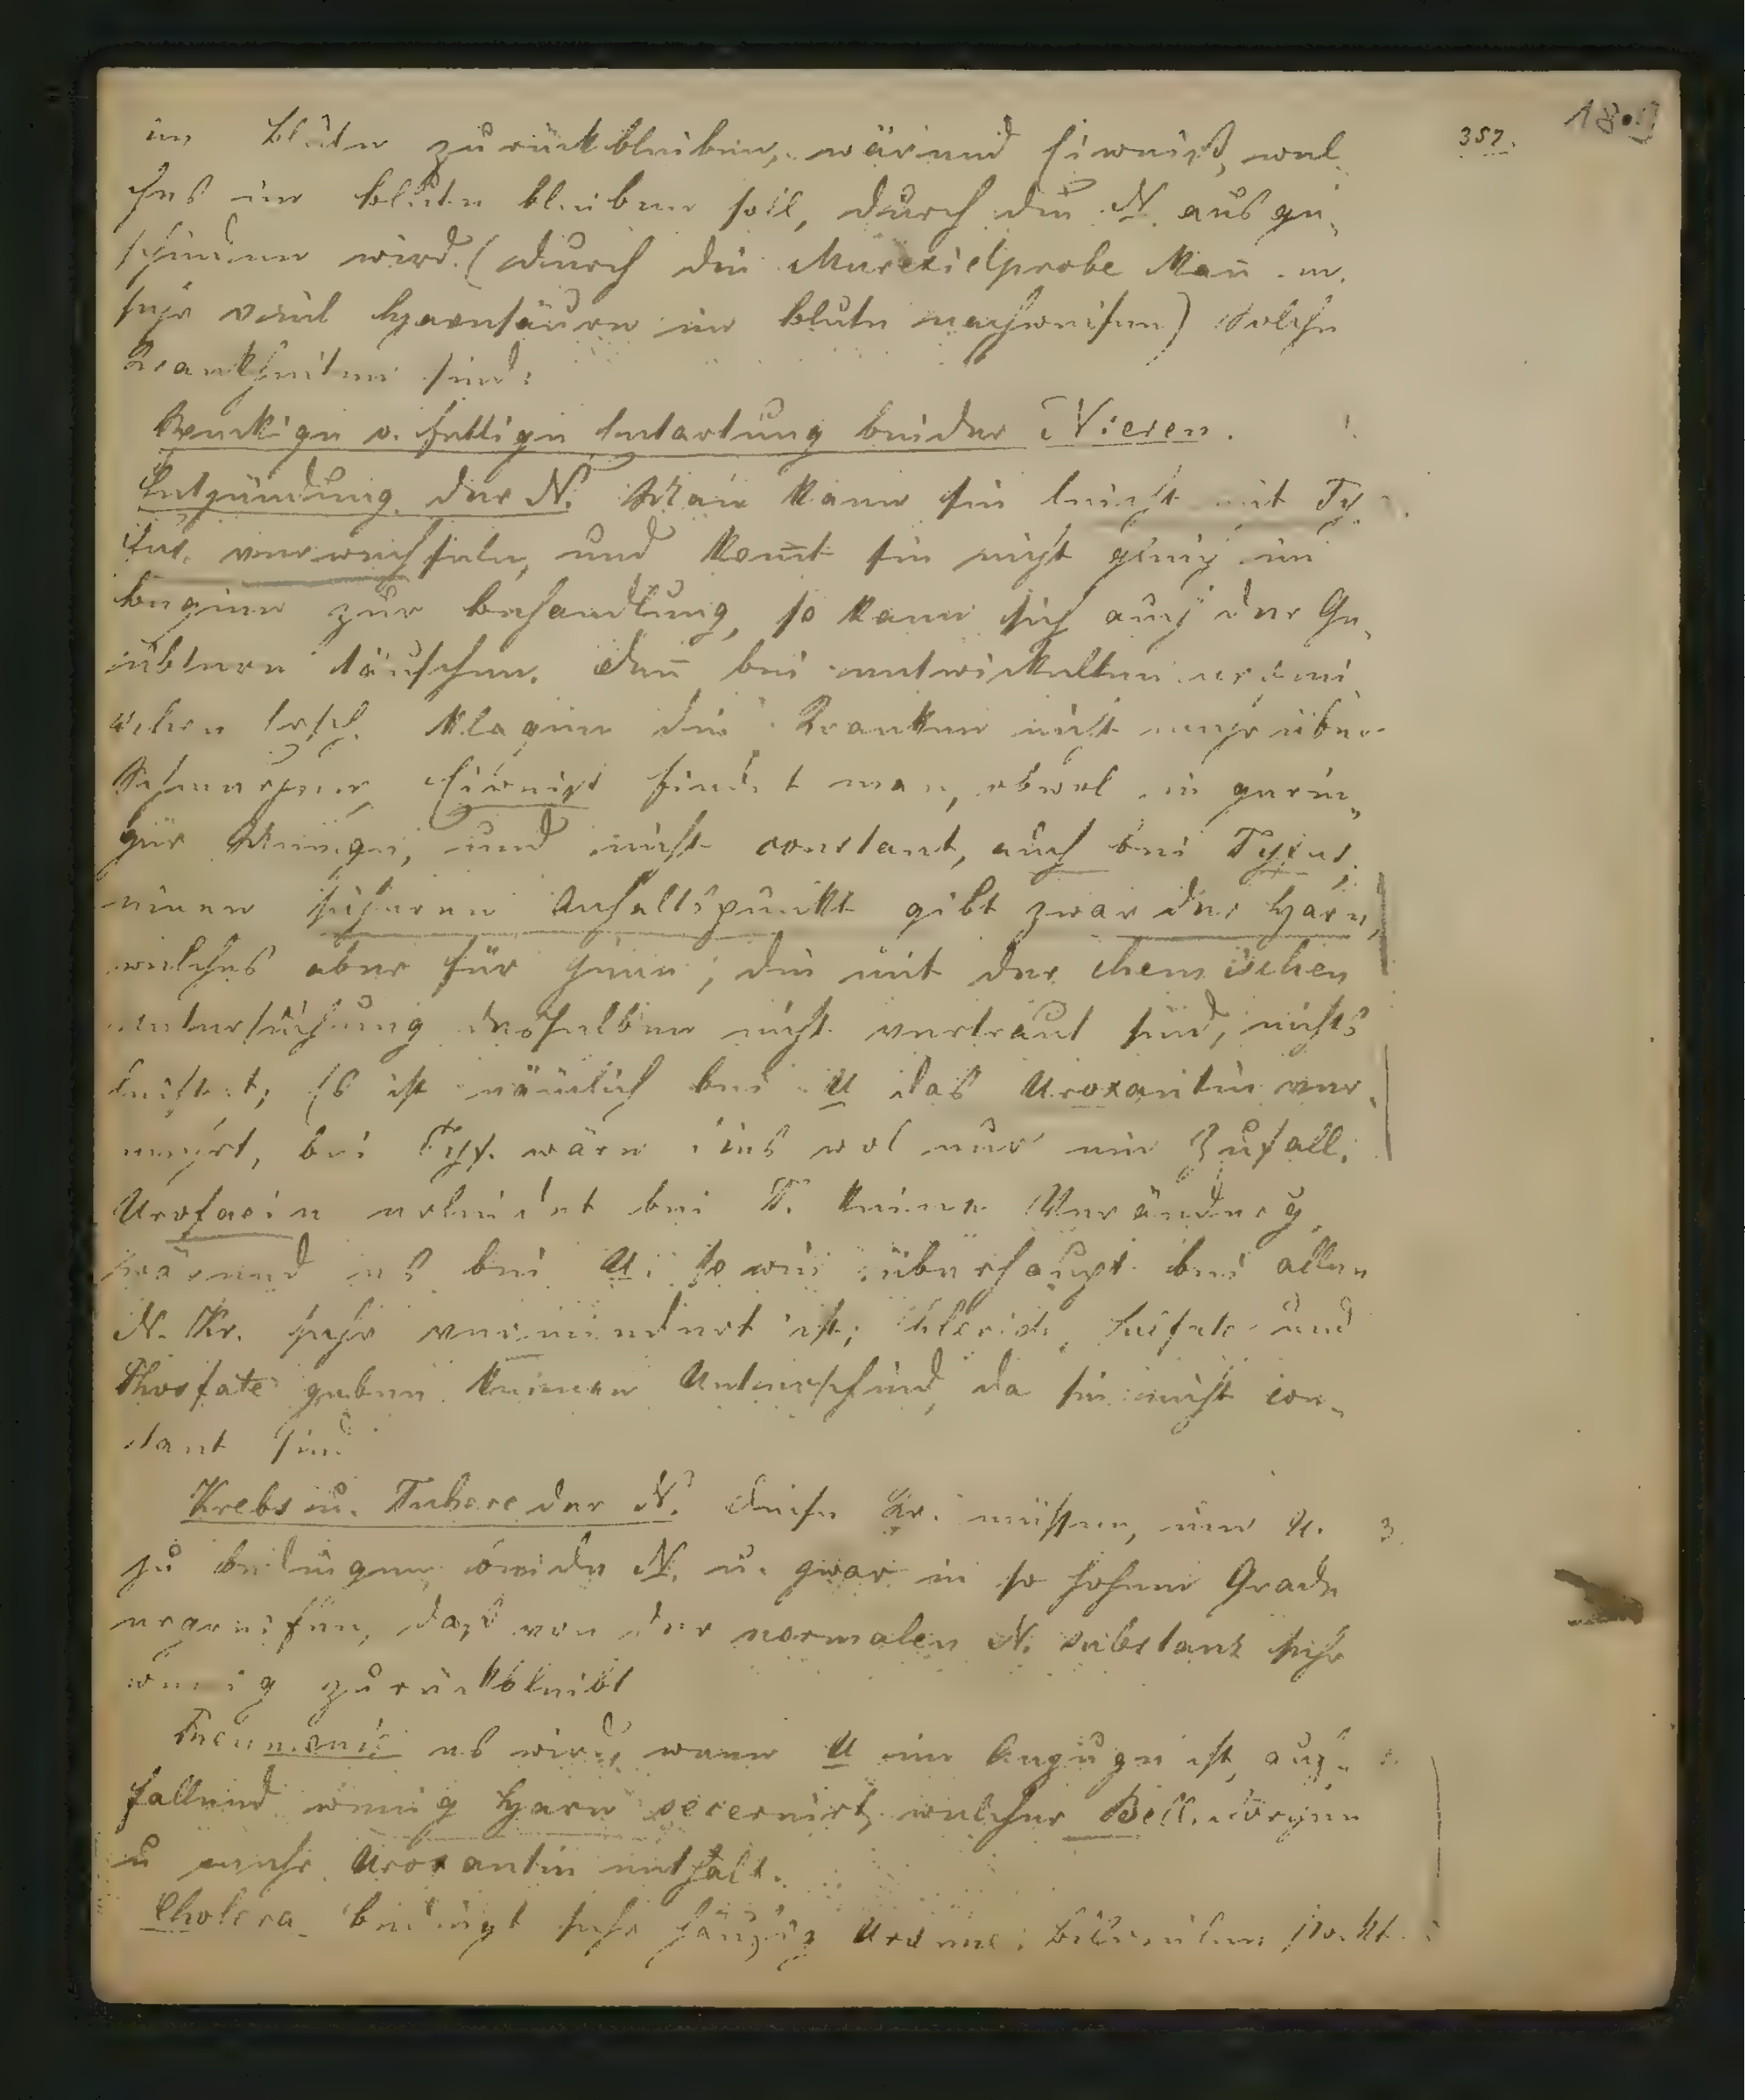 352.
180
im Blute zurückbleiben, wärend Eiweiß, wel-
ches im Blute bleiben soll, durch die N. ausge-
schieden wird. (durch die Murexidprobe kan̄ m.
sehr viel Harnsäure im Blute nachweisen) Solche
Krankheiten sind:
Speckige o. fettige Entartung beider Nieren. 1.
Entzündung der N. Man kann sie leicht mit Ty-
fus verwechseln, und kom̄t sie nicht gleich im
Beginn zur Behandlung, so kann sich auch der Ge-
übtere täuschen. Den̄ bei entwickelten urämi-
schen Ersch. klagen die Kranken nicht mehr über
Schmerzen, Eiweiß findet man, obwol in gerin-
ger Menge, und nicht constant, auch bei Tyfus,
einen sicheren Anhaltspunkt gibt zwar der Harn,
welches aber für jene, die mit der chemischen
Untersuchung desselben nicht vertraut sind, nichts
leistet; Es ist nämlich bei U das Uroxantin ver-
mehrt, bei Tyf. wäre dies wol nur ein Zufall.
Urofaein erleidet bei T. keine Verändrg,
wärend es bei U. so wie überhaupt bei allen
N. Kr. sehr vermindert ist; Chloride, Sulfate und
Phosfate geben keinen Unterschied, da sie nicht con-
stant sind
Krebs u. Tuberc der N. Diese Kr. müssen, um U. 3.
zu bedingen, beide N. u. zwar in so hohem Grade
ergreifen, daß von der normalen N. substanz sehr
wenig zurückbleibt
Pneumonie es wird, wenn U im Anzuge ist, auf-
fallend wenig Harn secernirt, welcher Bell. cörper
u mehr Uroxantin enthält.
Cholera bedingt sehr häufig Urämie;